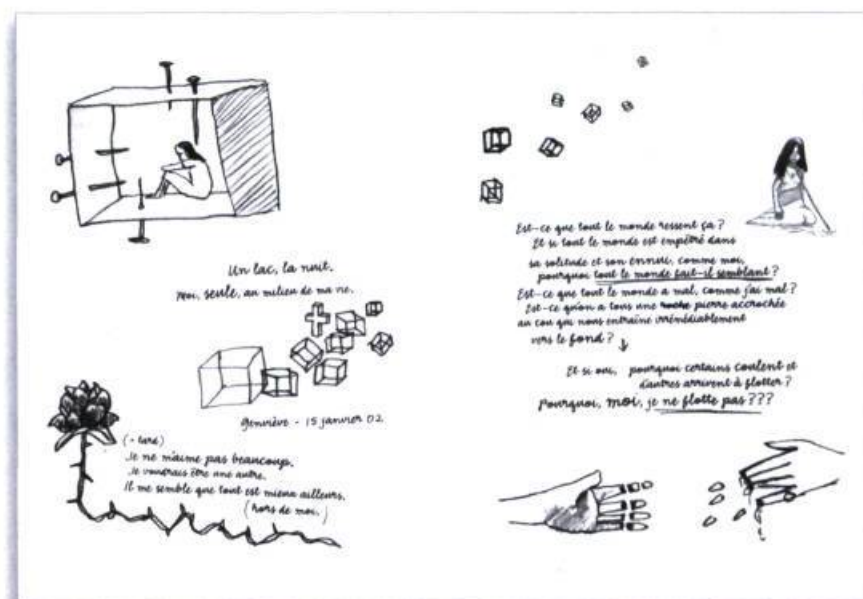 Un lac, la nuit.
Moi, seule, au milieu de ma vie.
Geneviève - 15 janvier 02
(+ tard)
Je ne m'aime pas beaucoup.
Je voudrais être une autre.
Il me semble que tout est mieux ailleurs.
(hors de moi.)
Est-ce que tout le monde ressent ça?
Et si tout le monde est empêtré dans
sa solitude et son ennui, comme moi,
pourquoi tout le monde fait-il semblant?
Est-ce que tout le monde a mal, comme j'ai mal?
Est-ce qu'on a tous une roche pierre accrochée
au cou qui nous entraîne irrémédiablement
vers le fond? ↓
Et si oui, pourquoi certains coulent et
d'autres arrivent à flotter?
Pourquoi, moi, je ne flotte pas???